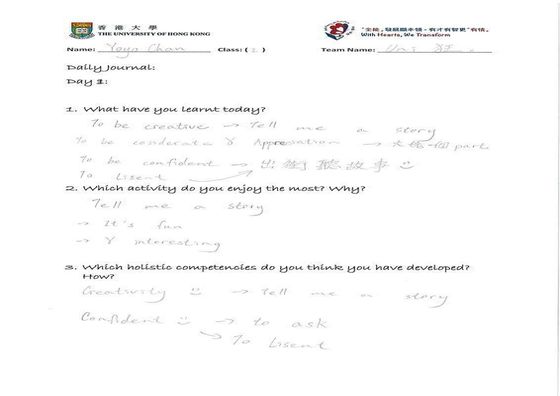 香港大學
THE UNIVERSITY OF HONG KONG
With Hearts, We Transform
Name: Yoyo Chan Class: ( 2 ) Team Name: Uni
Daily Journal:
Day 1:
1. What have you learnt today?
To be creative → Tell me a story
To be conderate & Appreciation → part
To be confident → 出街聽故事
To Lisent
2. Which activity do you enjoy the most? Why?
Tell me a story
→ It's fun
→ & interesting
3. Which holistic competencies do you think you have developed?
How?
Creativity → Tell me a story
Confident → to ask
→ To Lisent